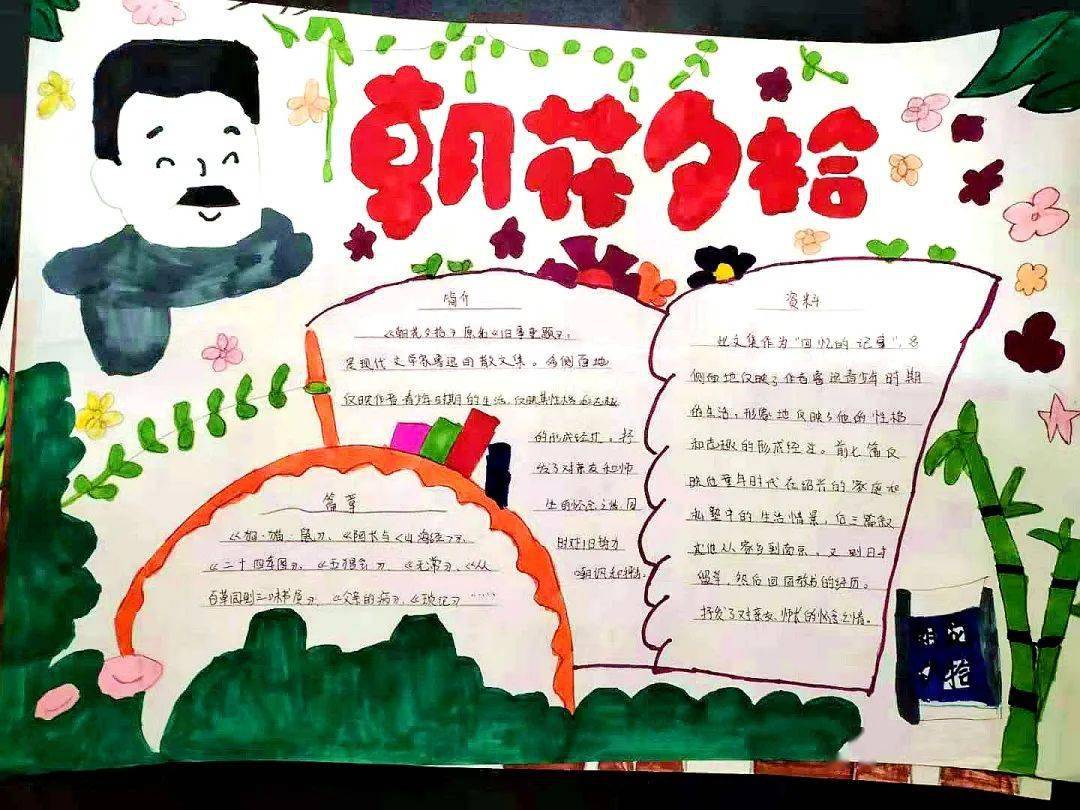 朝花夕拾
简介
《朝花夕拾》原名《旧事重题》,
是现代文学家鲁迅的散文集。多侧面地
仅映作者青少年时期的生活,仅映其性格和志趣
的形成经过。抒
发了对亲友和师
生的怀念之情,同
时对旧势力
嘲讽和
资料
此文集作为“回忆的记事”,多
侧面地仅映了作者鲁迅青少年时期
的生活,形象地仅映了他的性格
和志趣的形成经过。前七篇仅
映他童年时代在绍兴的家庭和
私塾中的生活情景,后三篇叙
述他从家乡到南京,又到日本
留学,然后回国教书的经历。
抒发了对亲友、师长的怀念之情。
篇章
《狗·猫·鼠》、《阿长与《山海经》》、
《二十四孝图》、《五猖会》、《无常》、《从
百草园到三味书屋》、《父亲的病》、《琐记》……
朝花
夕拾